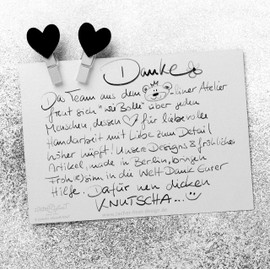 Danke
Das Team aus dem -liner Atelier
freut sich "wie Bolle" über jeden
Menschen, dessen für liebevolle
Handarbeit mit Liebe zum Detail
höher hüpft! Unsere Designs & fröhlichen
Artikel, made in Berlin, bringen
Froh(s)sinn in die Welt. Dank Eurer
Hilfe. Dafür nen dicken
KNUTSCHA...